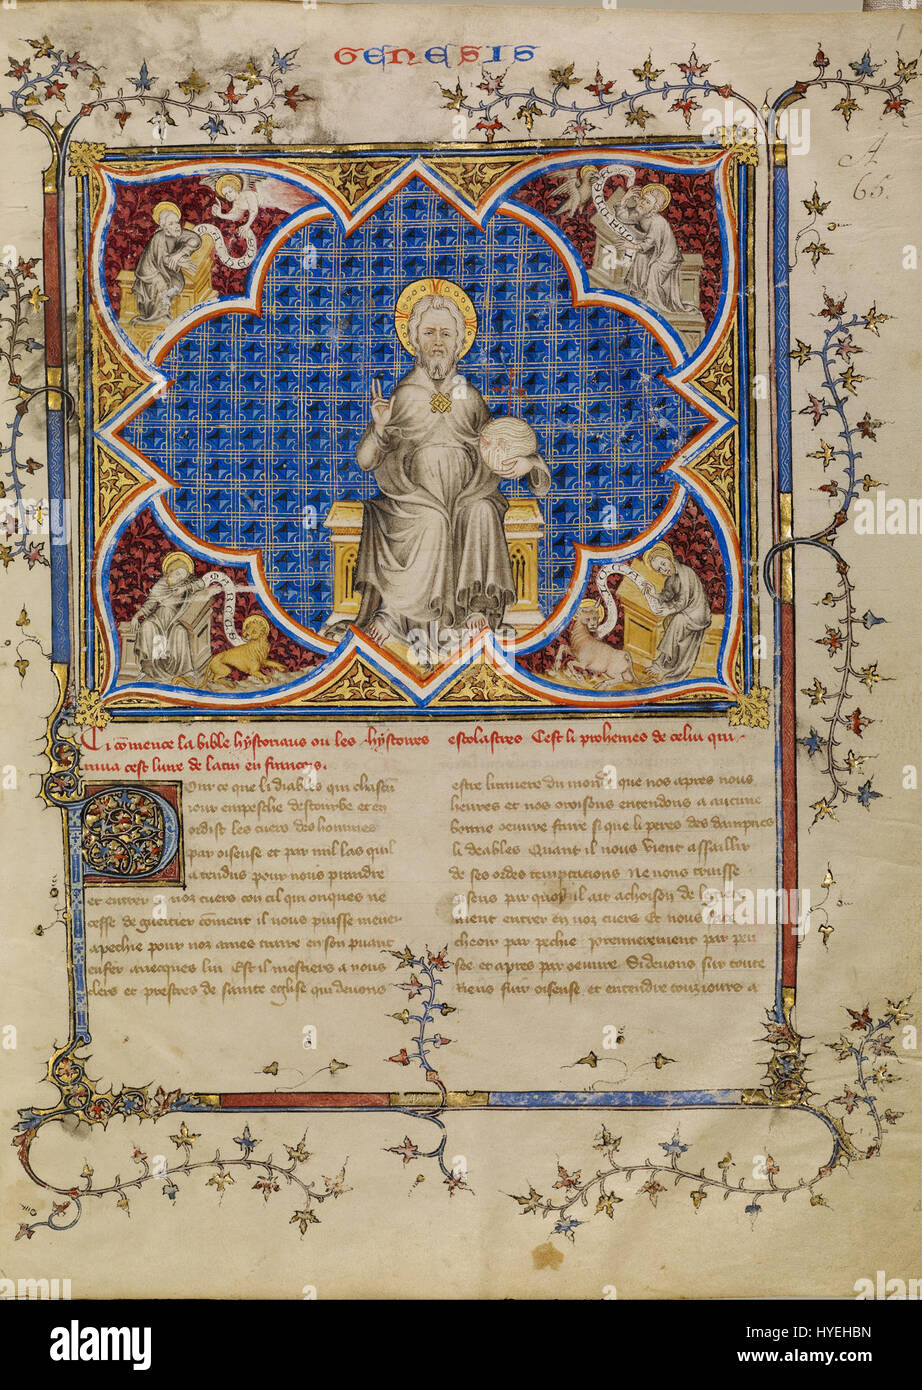 GENESIS
A
65.
Ci cõmence la bible hystoriaus ou les hystoires escolastres C'est li prohemes de celui qui
mua cest livre de latin en francois.
Pour ce que li diables qui chascũ
iour empesche destourbe et en
ordist les cuers des hommes
par oiseuse et par mil las quil
a tendus pour nous prandre
et entrer a noz cuers con cil qui onques ne
cesse de gueitier cõment il nous puisse mener
a pechie pour noz ames traire en son puant
enfer avecques lui Est il mestiers a nous
clers et prestres de sainte eglise qui devons
estre lumiere du monde que nos apres nous
heures et nos oroisons entendons a aucune
bonne oeuvre faire si que li peres des dampnes
li deables Quant il nous vient assaillir
de ses ordes temptacions Ne nous truisse
oiseus par quoy il ait achoison de
ment entrer en noz cuers Et nous face
cheoir par pechie premierement par pen
see et apres par oeuvre. Si devons sur toute
riens fuir oiseuse et entendre touz iours a
alamy stock photo
HYEHBN
www.alamy.com